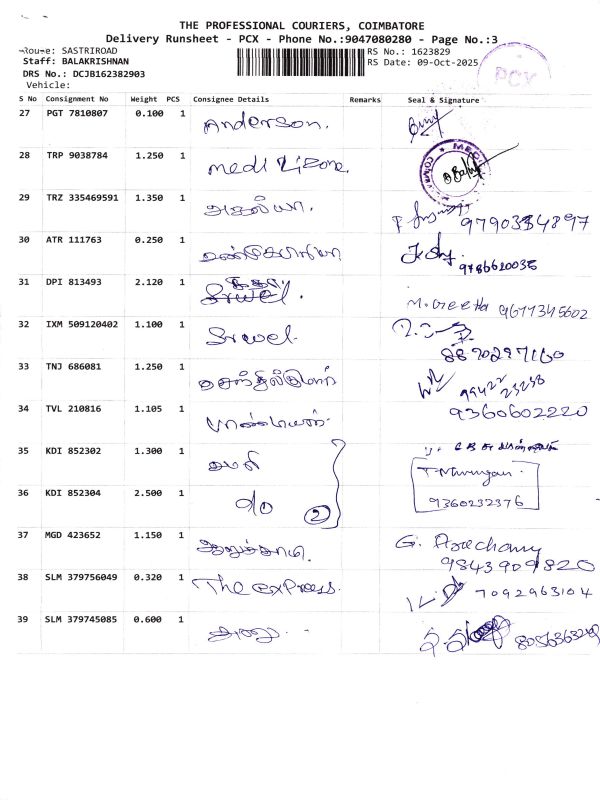 THE PROFESSIONAL COURIERS, COIMBATORE
Delivery Runsheet - PCX - Phone No.:9047080280 - Page No.:3
Route: SASTRIROAD
RS No.: 1623829
Staff: BALAKRISHNAN
RS Date: 09-Oct-2025
DRS No.: DCJB162382903
PCX
Vehicle:
S No Consignment No Weight PCS Consignee Details Remarks Seal & Signature
27 PGT 7810807 0.100 1 Anderson.
28 TRP 9038784 1.250 1 Medi Lizone. MEDI
29 TRZ 335469591 1.350 1 அகல்யா. 9790334897
30 ATR 111763 0.250 1 9786620035
31 DPI 813493 2.120 1 M. Geetha 9677345602
32 IXM 509120402 1.100 1 Srwel. 8870297160
33 TNJ 686081 1.250 1 செந்தில்குமார் 99422 23238
34 TVL 210816 1.105 1 பாண்டியன். 9360602220
35 KDI 852302 1.300 1 T. Murugan.
36 KDI 852304 2.500 1 do 2 9360232376
37 MGD 423652 1.150 1 ஆறுச்சாமி. G. Arachamy
9843909820
38 SLM 379756049 0.320 1 The express. 7092963104
39 SLM 379745085 0.600 1 அனு.